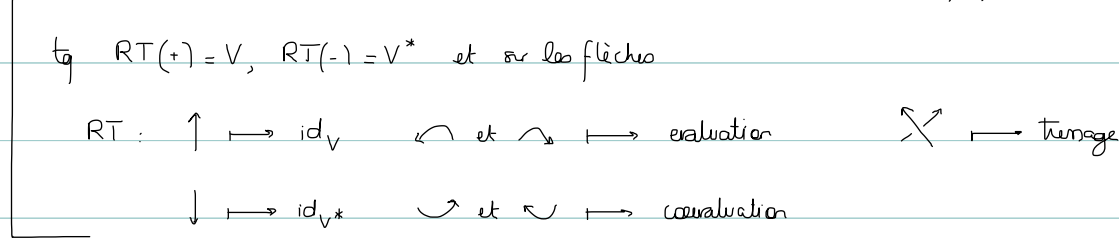 tq RT(+) = V, RT(-) = V* et sur les flèches
RT : ↑ ⟼ id_V ↶ et ↷ ⟼ evaluation ⤲ ⟼ tressage
↓ ⟼ id_V* ⤻ et ⟼ coevaluation